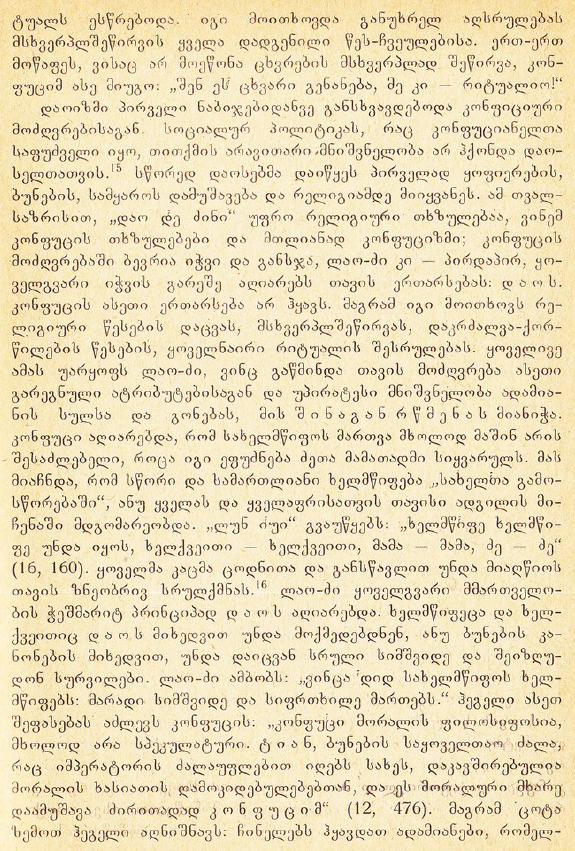 ტუალს ესწრებოდა. იგი მოითხოვდა განუხრელ აღსრულებას
მსხვერპლშეწირვის ყველა დადგენილი წეს-ჩვეულებისა. ერთ-ერთ
მოწაფეს, ვისაც არ მოეწონა ცხვრების მსხვერპლად შეწირვა, კონ-
ფუციმ ასე მიუგო: „შენ ეს ცხვარი გენანება, მე კი — რიტუალიო!“
დაოიზმი პირველი ნაბიჯებიდანვე განსხვავდებოდა კონფიციური
მოძღვრებისაგან. სოციალურ პოლიტიკას, რაც კონფუციანელთა
საფუძველი იყო, თითქმის არავითარი მნიშვნელობა არ ჰქონდა დაო-
სელთათვის.15 სწორედ დაოსებმა დაიწყეს პირველად ყოფიერების,
ბუნების, სამყაროს დამუშავება და რელიგიამდე მიიყვანეს. ამ თვალ-
საზრისით, „დაო დე ძინი“ უფრო რელიგიური თხზულებაა, ვინემ
კონფუცის თხზულებები და მთლიანად კონფუციზმი; კონფუცის
მოძღვრებაში ბევრია იჭვი და განსჯა, ლაო-ძი კი — პირდაპირ, ყო-
ველგვარი იჭვის გარეშე აღიარებს თავის ერთარსებას: დ ა ო ს.
კონფუცის ასეთი ერთარსება არ ჰყავს. მაგრამ იგი მოითხოვს რე-
ლიგიური წესების დაცვას, მსხვერპლშეწირვას, დაკრძალვა-ქორ-
წილების წესების, ყოველნაირი რიტუალის შესრულებას. ყოველივე
ამას უარყოფს ლაო-ძი, ვინც გაწმინდა თავის მოძღვრება ასეთი
გარეგნული ატრიბუტებისაგან და უპირატესი მნიშვნელობა ადამია-
ნის სულსა და გონებას, მის შ ი ნ ა გ ა ნ რ წ მ ე ნ ა ს მიანიჭა.
კონფუცი აღიარებდა, რომ სახელმწიფოს მართვა მხოლოდ მაშინ არის
შესაძლებელი, როცა იგი ეფუძნება ძეთა მამათადმი სიყვარულს. მას
მიაჩნდა, რომ სწორი და სამართლიანი ხელმწიფება „სახელთა გამო-
სწორებაში“, ანუ ყველას და ყველაფრისათვის თავისი ადგილის მი-
ჩენაში მდგომარეობდა. „ლუნ იუი“ გვაუწყებს: „ხელმწიფე ხელმწი-
ფე უნდა იყოს, ხელქვეითი — ხელქვეითი, მამა — მამა, ძე — ძე“
(16, 160). ყოველმა კაცმა ცოდნითა და განსწავლით უნდა მიაღწიოს
თავის ზნეობრივ სრულქმნას.16 ლაო-ძი ყოველგვარი მმართველო-
ბის ჭეშმარიტ პრინციპად დ ა ო ს აღიარებდა. ხელმწიფეცა და ხელ-
ქვეითიც დ ა ო ს მიხედვით უნდა მოქმედებდნენ, ანუ ბუნების კა-
ნონების მიხედვით, უნდა დაიცვან სრული სიმშვიდე და შეიზღუ-
დონ სურვილები. ლაო-ძი ამბობს: „ვინცა დიდ სახელმწიფოს ხელ-
მწიფებს: მარადი სიმშვიდე და სიფრთხილე მართებს.“ ჰეგელი ასეთ
შეფასებას აძლევს კონფუცის: „კონფუცი მორალის ფილოსოფოსია,
მხოლოდ არა სპეკულატური. ტ ი ა ნ, ბუნების საყოველთაო ძალა,
რაც იმპერატორის ძალაუფლებით იღებს სახეს, დაკავშირებულია
მორალის ხასიათის დამოკიდებულებებთან, და ეს მორალური მხარე
დაამუშავა ძირითადად კ ო ნ ფ უ ც ი მ“ (12, 476). მაგრამ ცოტა
ზემოთ ჰეგელი აღნიშნავს: ჩინელებს ჰყავდათ ადამიანები, რომელ-